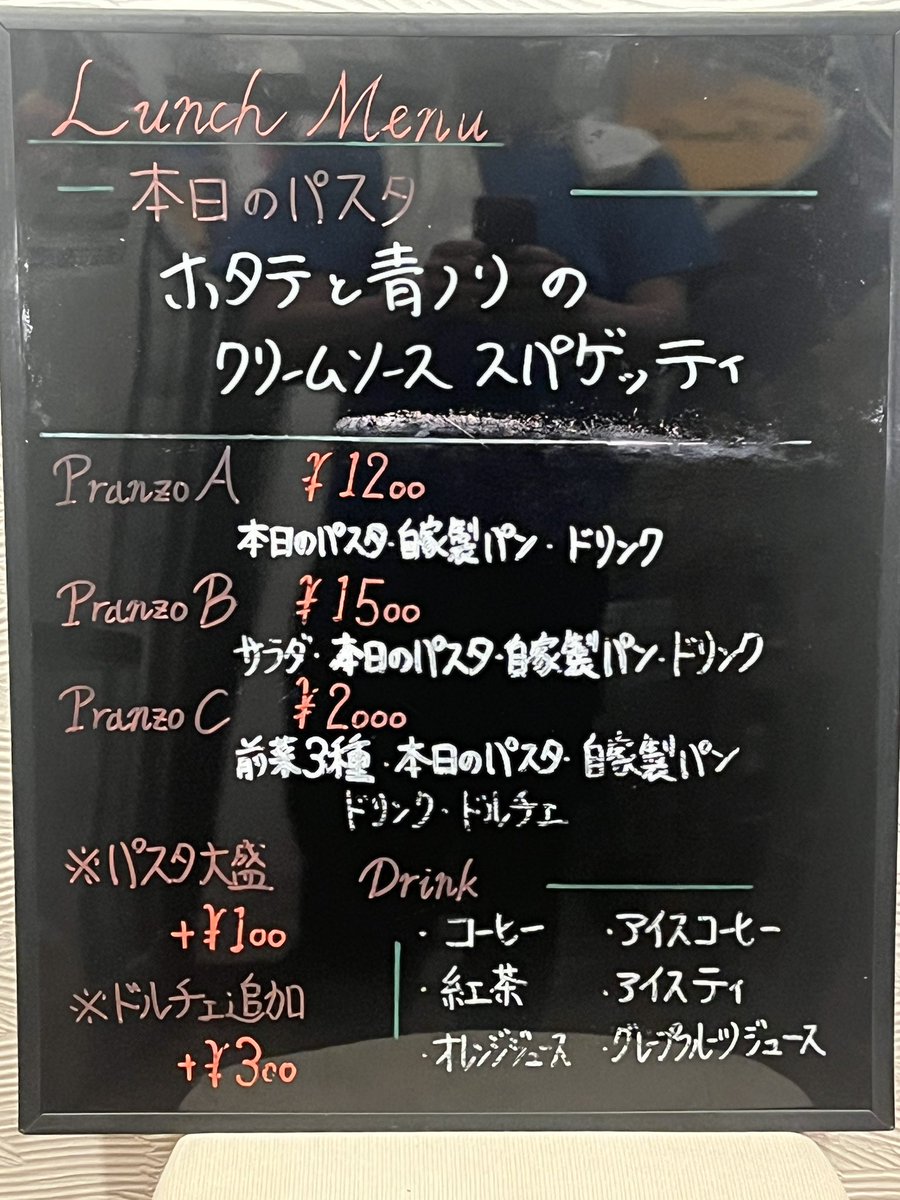 Lunch Menu
本日のパスタ
ホタテと青ノリの
クリームソース スパゲッティ
Pranzo A ¥1200
本日のパスタ・自家製パン・ドリンク
Pranzo B ¥1500
サラダ・本日のパスタ・自家製パン・ドリンク
Pranzo C ¥2000
前菜3種・本日のパスタ・自家製パン
ドリンク・ドルチェ
※パスタ大盛
+¥100
※ドルチェ追加
+¥300
Drink
・コーヒー ・アイスコーヒー
・紅茶 ・アイスティ
・オレンジジュース ・グレープフルーツジュース